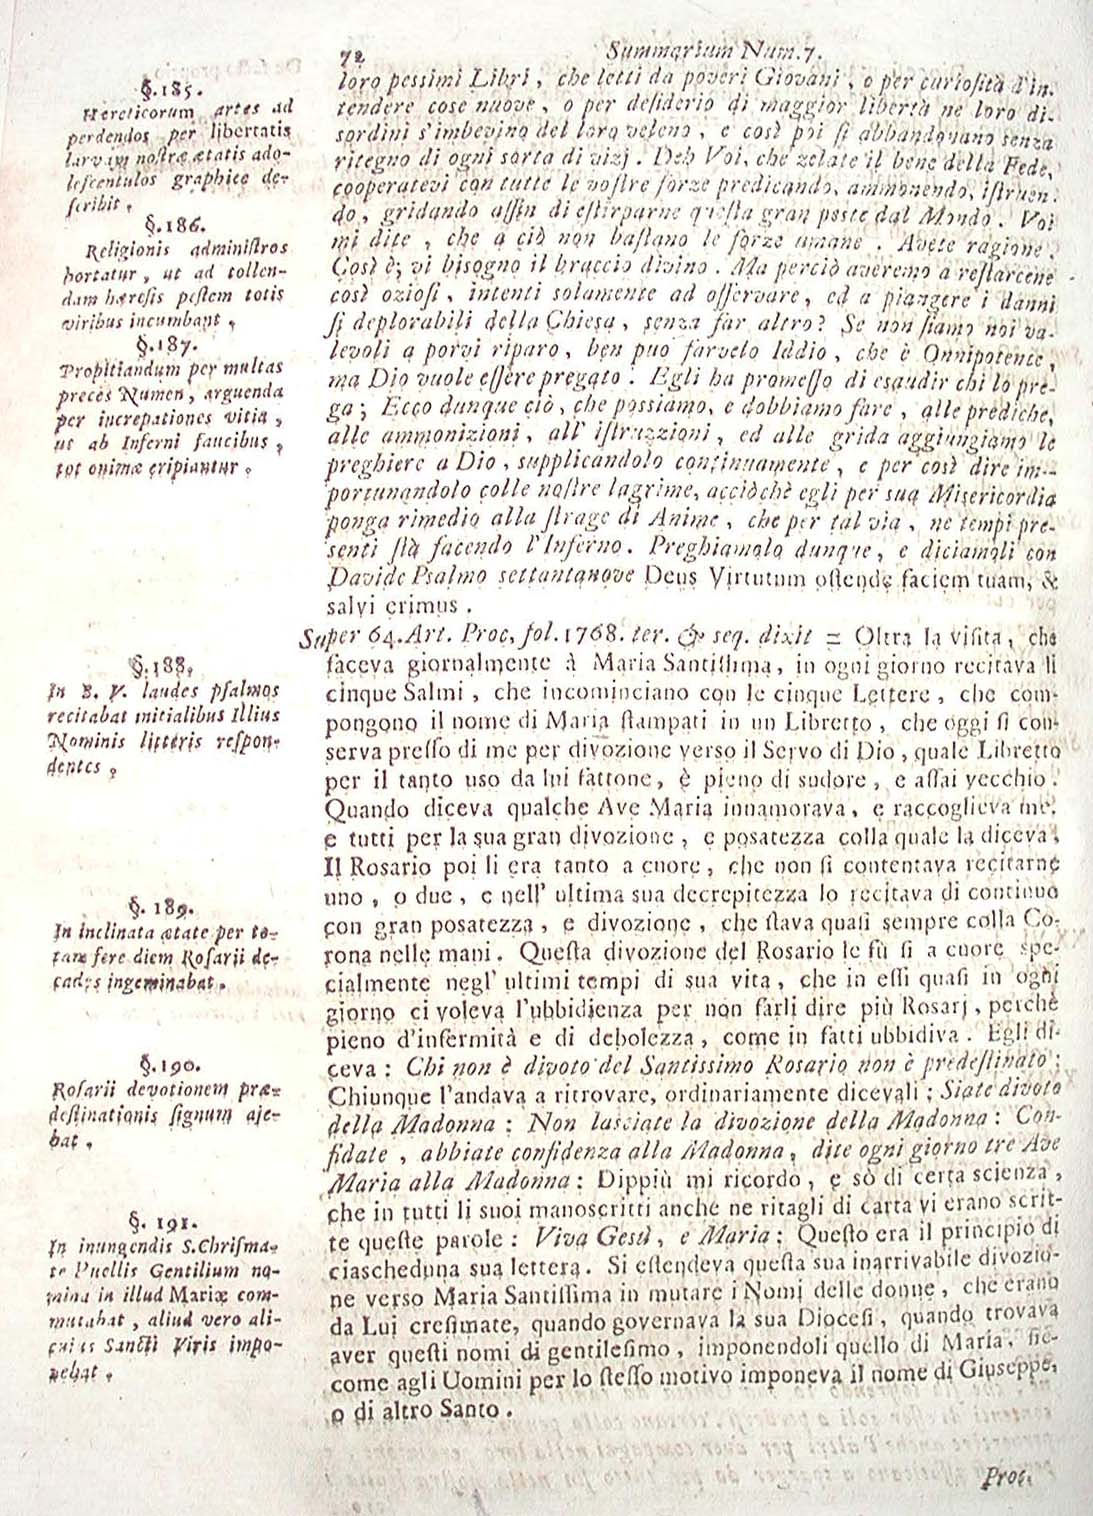 72 Summarium Num. 7.
§.185.
Hereticorum artes ad
perdendos per libertatis
larvam nostræ ætatis ado-
lescentulos graphice de-
scribit.
§.186.
Religionis administros
hortatur, ut ad tollen-
dam hæresis pestem totis
viribus incumbant.
§.187.
Propitiandum per multas
preces Numen, arguenda
per increpationes vitia,
ut ab Inferni faucibus,
tot animæ eripiantur.
loro pessimi Libri, che letti da poveri Giovani, o per curiosità d'in-
tendere cose nuove, o per desiderio di maggior libertà ne loro di-
sordini s'imbevino del loro veleno, e così poi si abbandonano senza
ritegno di ogni sorta di vizj. Deh Voi, che zelate il bene della Fede,
cooperatevi con tutte le vostre forze predicando, ammonendo, istruen-
do, gridando affin di estirparne questa gran peste dal Mondo. Voi
mi dite, che a ciò non bastano le forze umane. Avete ragione.
Così è; vi bisogna il braccio divino. Ma perciò averemo a restarcene
così oziosi, intenti solamente ad osservare, ed a piangere i danni
sì deplorabili della Chiesa, senza far altro? Se non siamo noi va-
levoli a porvi riparo, ben può farvelo Iddio, che è Onnipotente,
ma Dio vuole essere pregato. Egli ha promesso di esaudir chi lo pre-
ga; Ecco dunque ciò, che possiamo, e dobbiamo fare, alle prediche,
alle ammonizioni, all' istruzzioni, ed alle grida aggiungiamo le
preghiere a Dio, supplicandolo continuamente, e per così dire im-
portunandolo colle nostre lagrime, acciòchè egli per sua Misericordia
ponga rimedio alla strage di Anime, che per tal via, ne tempi pre-
senti stà facendo l'Inferno. Preghiamolo dunque, e diciamoli con
Davide Psalmo settantanove Deus Virtutum ostende faciem tuam, &
salvi erimus.
Super 64. Art. Proc, fol. 1768. ter. & seq. dixit = Oltra la visita, che
faceva giornalmente à Maria Santissima, in ogni giorno recitava li
cinque Salmi, che incominciano con le cinque Lettere, che com-
pongono il nome di Maria stampati in un Libretto, che oggi si con-
serva presso di me per divozione verso il Servo di Dio, quale Libretto
per il tanto uso da lui fattone, è pieno di sudore, e assai vecchio.
Quando diceva qualche Ave Maria innamorava, e raccoglieva me,
e tutti per la sua gran divozione, e posatezza colla quale la diceva.
Il Rosario poi li era tanto a cuore, che non si contentava recitarne
uno, o due, e nell' ultima sua decrepitezza lo recitava di continuo
con gran posatezza, e divozione, che stava quasi sempre colla Co-
rona nelle mani. Questa divozione del Rosario le fù sì a cuore spe-
cialmente negl' ultimi tempi di sua vita, che in essi quasi in ogni
giorno ci voleva l'ubbidienza per non farli dire più Rosarj, perchè
pieno d'infermità e di debolezza, come in fatti ubbidiva. Egli di-
ceva: Chi non è divoto del Santissimo Rosario non è predestinato;
Chiunque l'andava a ritrovare, ordinariamente dicevali; Siate divoto
della Madonna: Non lasciate la divozione della Madonna: Con-
fidate, abbiate confidenza alla Madonna, dite ogni giorno tre Ave
Maria alla Madonna: Dippiù mi ricordo, e sò di certa scienza,
che in tutti li suoi manoscritti anche ne ritagli di carta vi erano scrit-
te queste parole: Viva Gesù, e Maria: Questo era il principio di
ciascheduna sua lettera. Si estendeva questa sua inarrivabile divozio-
ne verso Maria Santissima in mutare i Nomi delle donne, che erano
da Lui cresimate, quando governava la sua Diocesi, quando trovava
aver questi nomi di gentilesimo, imponendoli quello di Maria, sic-
come agli Uomini per lo stesso motivo imponeva il nome di Giuseppe,
o di altro Santo.
§.188.
In B. V. laudes psalmos
recitabat initialibus Illius
Nominis litteris respon-
dentes.
§. 189.
In inclinata ætate per to-
tam fere diem Rosarii de-
cades ingeminabat.
§.190.
Rosarii devotionem præ-
destinationis signum aje-
bat.
§. 191.
In inungendis S. Chrisma-
te Puellis Gentilium no-
mina in illud Mariæ com-
mutabat, aliud vero ali-
cujus Sancti Viris impo-
nebat.
Proc.